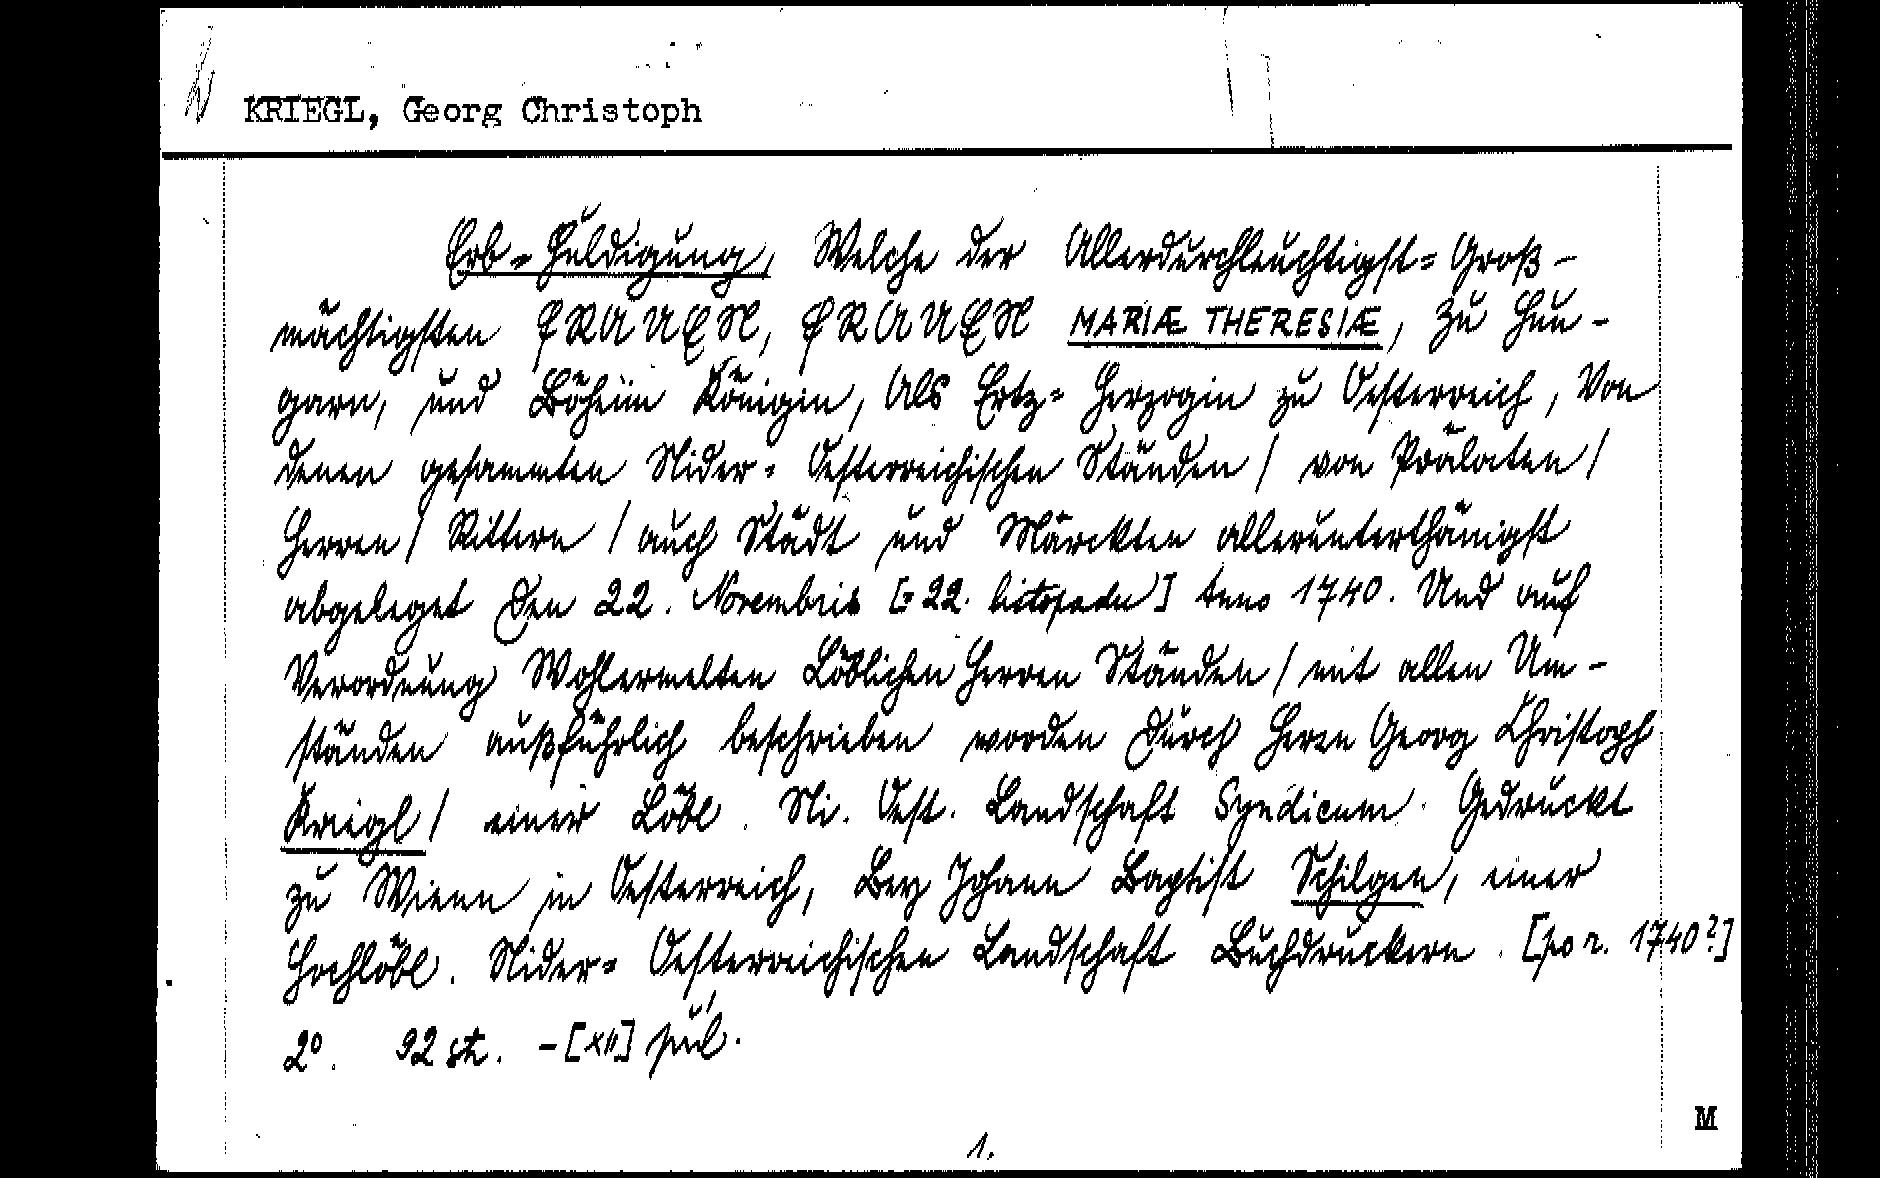 KRIEGL, Georg Christoph
Erb-Huldigung, Welche der Allerdurchleuchtigst= Groß-
mächtigsten FRAUEN, FRAUEN MARIÆ THERESIÆ, zu Hun-
garn, und Böheim Königin, Als Ertz= Herzogin zu Oesterreich, Von
denen gesammten Nider= Oesterreichischen Ständen / von Prälaten /
Herren / Rittern / auch Städt und Märckten allerunterthänigst
abgeleget Den 22. Novembris [= 22. listopadu] Anno 1740. Und auf
Verordnung Wohlermelten Löblichen Herren Ständen / mit allen Um-
ständen außführlich beschrieben worden Durch Herrn Georg Christoph
Kriegl / einer Löbl. Ni. Oest. Landschaft Syndicum. Gedruckt
zu Wienn in Oesterreich, Bey Johann Baptist Schilgen, einer
Hochlöbl. Nider= Oesterreichischen Landschaft Buchdruckern. [po r. 1740?]
2°. 92 str. - [XII] příl.
1.
M